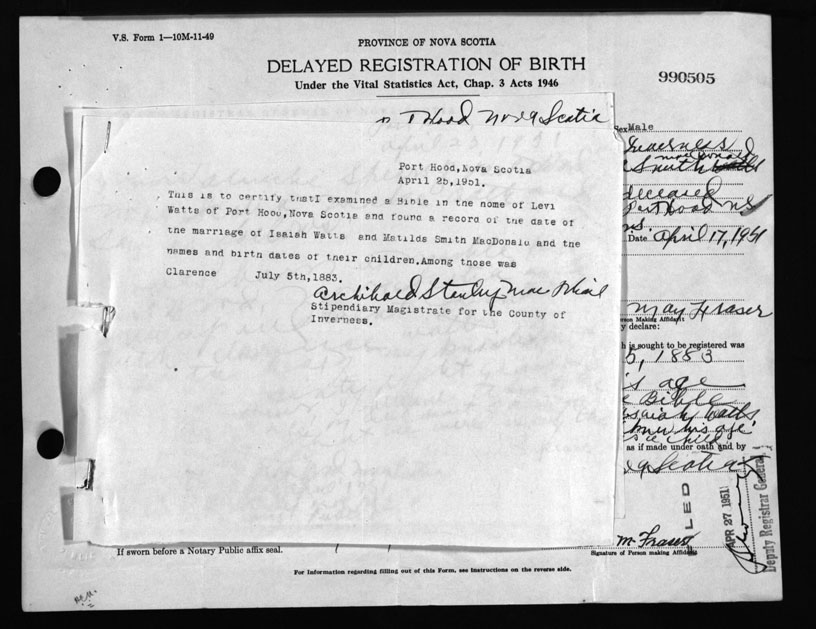 V.S. Form 1—10M-11-49
PROVINCE OF NOVA SCOTIA
DELAYED REGISTRATION OF BIRTH
Under the Vital Statistics Act, Chap. 3 Acts 1946
990505
Hood Nova Scotia
Port Hood,Nova Scotia
April 25,1951.
This is to certify thatI examined a Bible in the nome of Levi
Watts of Port Hood,Nova Scotia and found a record of the date of
the marriage of Isaiah Watts and Matilds Smith MacDonald and the
names and birth dates of their children.Among those was
Clarence July 5th,1883.
Archibald Stanley Mac
Stipendiary Magistrate for the County of
Inverness.
Sex Male
Inverness
MacDonald
Smith
deceased
Port Hood NS
NS.
Date April 17, 1951
May Fraser
Person Making Affidavit
y declare:
h is sought to be registered was
5, 1883
his age
Bible
Isaiah Watts
his age
as if made under oath and by
Scotia
FILED
APR 27 1951
Deputy Registrar General
M. Fraser
Signature of Person making Affidavit
If sworn before a Notary Public affix seal.
For Information regarding filling out of this Form, see Instructions on the reverse side.